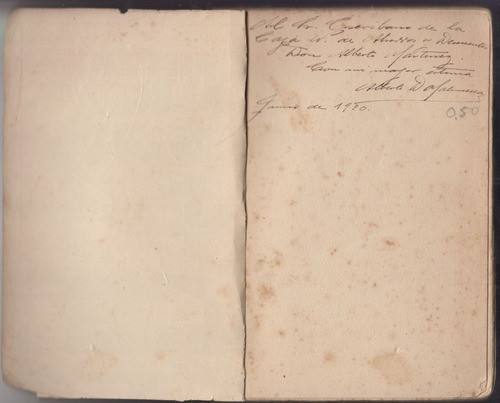 Al Sr. Escribano de la
Caja N. de Ahorros y Descuentos
Don Alberto Martinez
Con mi mayor estima
Alberto
Junio de 1920.
0,50